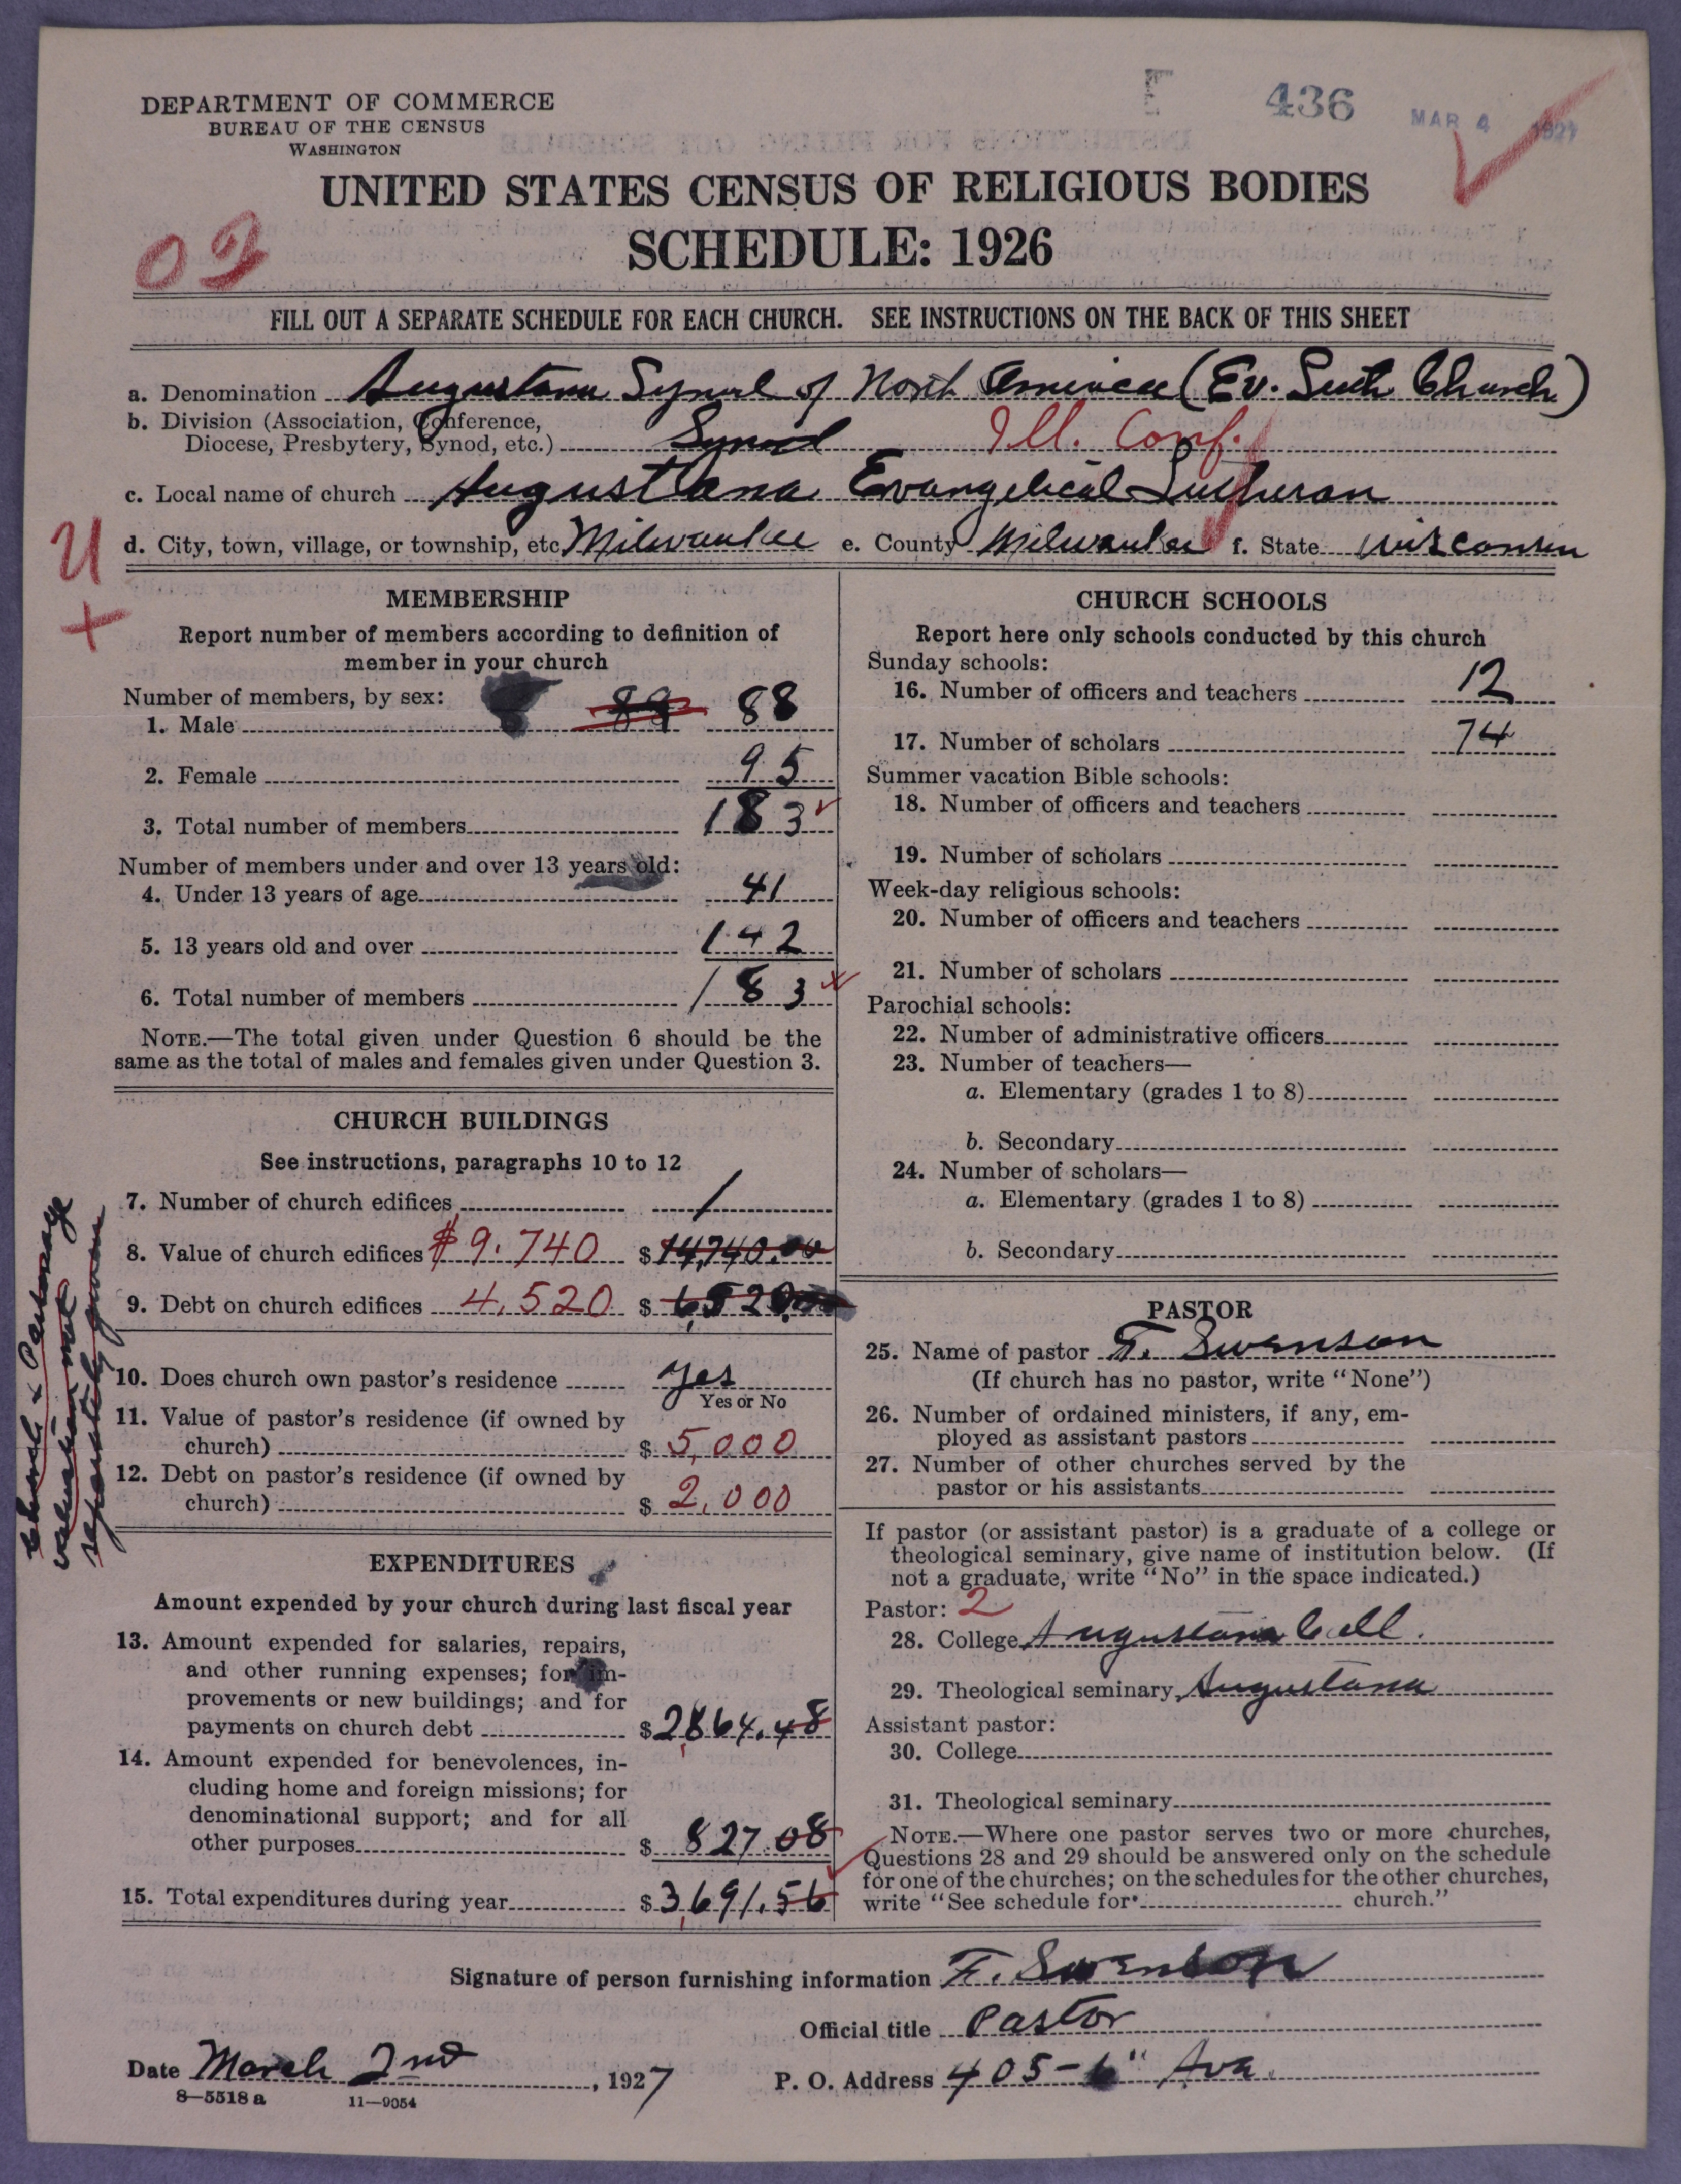 DEPARTMENT OF COMMERCE
BUREAU OF THE CENSUS
WASHINGTON
436
MAR 4 1927
UNITED STATES CENSUS OF RELIGIOUS BODIES
SCHEDULE: 1926
02
FILL OUT A SEPARATE SCHEDULE FOR EACH CHURCH. SEE INSTRUCTIONS ON THE BACK OF THIS SHEET
a. Denomination Augustana Synod of North America (Ev. Luth Church)
b. Division (Association, Conference,
Diocese, Presbytery, Synod, etc.) Synod Ill. Conf.
c. Local name of church Augustana Evangelical Lutheran
d. City, town, village, or township, etc Milwaukee e. County Milwaukee f. State Wisconsin
U
+
MEMBERSHIP
Report number of members according to definition of
member in your church
Number of members, by sex:
1. Male 89 88
2. Female 95
3. Total number of members 183
Number of members under and over 13 years old:
4. Under 13 years of age 41
5. 13 years old and over 142
6. Total number of members 183
NOTE.—The total given under Question 6 should be the
same as the total of males and females given under Question 3.
CHURCH BUILDINGS
See instructions, paragraphs 10 to 12
7. Number of church edifices 1
8. Value of church edifices $9.740 $14,740.00
9. Debt on church edifices 4,520 $6,520.00
10. Does church own pastor's residence yes
Yes or No
11. Value of pastor's residence (if owned by
church) $5,000
12. Debt on pastor's residence (if owned by
church) $2,000
Church & Parsonage
valuation not
separately given
EXPENDITURES
Amount expended by your church during last fiscal year
13. Amount expended for salaries, repairs,
and other running expenses; for im-
provements or new buildings; and for
payments on church debt $2864.48
14. Amount expended for benevolences, in-
cluding home and foreign missions; for
denominational support; and for all
other purposes $827.08
15. Total expenditures during year $3,691.56
CHURCH SCHOOLS
Report here only schools conducted by this church
Sunday schools:
16. Number of officers and teachers 12
17. Number of scholars 74
Summer vacation Bible schools:
18. Number of officers and teachers
19. Number of scholars
Week-day religious schools:
20. Number of officers and teachers
21. Number of scholars
Parochial schools:
22. Number of administrative officers
23. Number of teachers—
a. Elementary (grades 1 to 8)
b. Secondary
24. Number of scholars—
a. Elementary (grades 1 to 8)
b. Secondary
PASTOR
25. Name of pastor F. Swenson
(If church has no pastor, write "None")
26. Number of ordained ministers, if any, em-
ployed as assistant pastors
27. Number of other churches served by the
pastor or his assistants
If pastor (or assistant pastor) is a graduate of a college or
theological seminary, give name of institution below. (If
not a graduate, write "No" in the space indicated.)
Pastor: 2
28. College Augustana Coll.
29. Theological seminary Augustana
Assistant pastor:
30. College
31. Theological seminary
NOTE.—Where one pastor serves two or more churches,
Questions 28 and 29 should be answered only on the schedule
for one of the churches; on the schedules for the other churches,
write "See schedule for church."
Signature of person furnishing information F. Swenson
Official title Pastor
Date March 2nd, 1927 P. O. Address 405-6" Ava.
8-5518 a 11-9054